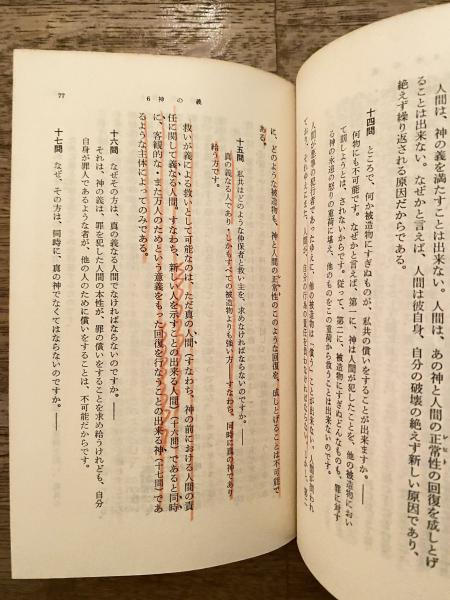 人間は、神の義を満たすことは出来ない。人間は、あの神と人間の正常性の回復を成しとげ
ることは出来ない。なぜかと言えば、人間は彼自身、自分の破壊の絶えず新しい原因であり、
絶えず繰り返される原因だからである。
十四問 ところで、何か被造物にすぎぬものが、私共の償いをすることが出来ますか。――
何物にも不可能です。なぜかと言えば、第一に、神は人間が犯したことを、他の被造物におい
て罰しようとは、されないからです。従って、第二に、被造物にすぎぬどんなものも、罪に対す
る神の永遠の怒りの重荷に堪え、他のものをこの重荷から救うことは出来ないのです。
人間が悪事の犯行者であったゆえに、他の被造物は「償う」ことが出来ない。人間が問われ
に、どのような被造物も、神と人間の正常性のこのような回復を、成しとげることは不可能で
ある。
十五問 私共はどのような仲保者と救い主を、求めなければならないのですか。――
真の義なる人であり・しかもすべての被造物よりも強い方――すなわち、同時に真の神であり
給う方です。
救いが義による救いとして可能なのは、ただ真の人間(すなわち、神の前における人間の責
任に関して義なる人間。すなわち、新しい人を示すことの出来る人間(十六問)であると同時
に、客観的な・また万人のためという意義をもった回復を行なうことの出来る神(十七問)であ
るような主体によってのみである。
十六問 なぜその方は、真の義なる人間でなければならないのですか。――
それは、神の義は、罪を犯した人間の本性が、罪の償いをすることを求め給うけれども、自分
自身が罪人であるような者が、他の人のために償いをすることは、不可能だからです。
十七問 なぜ、その方は、同時に、真の神でなくてはならないのですか。――
6 神の義
77